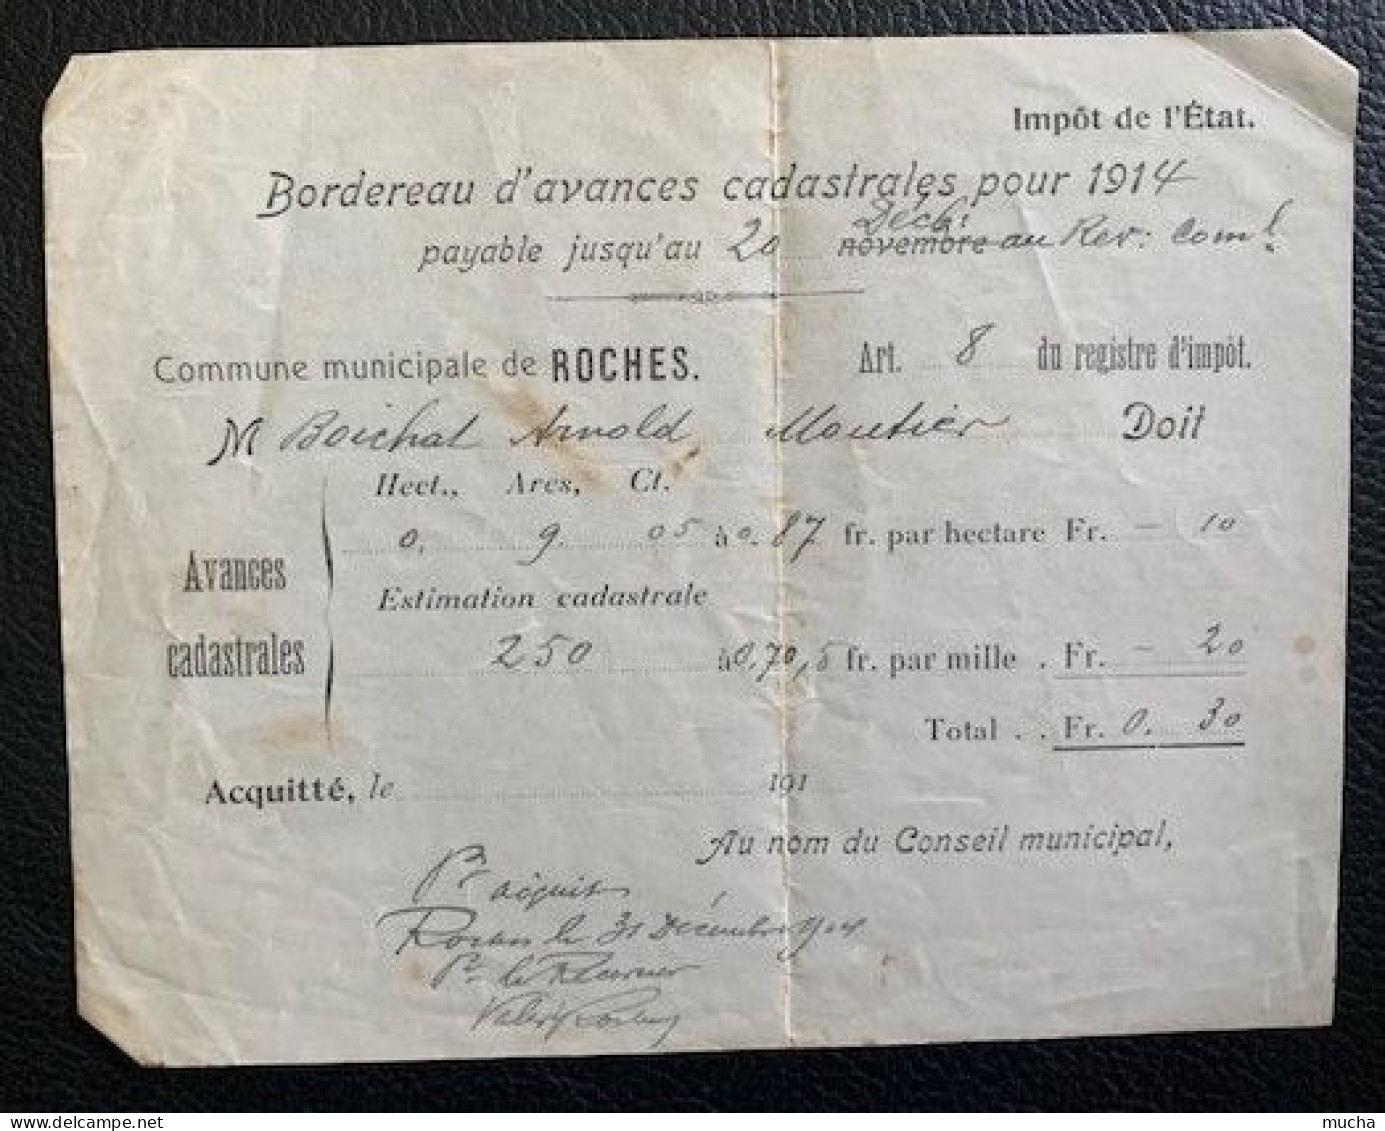 Impôt de l'État.
Bordereau d'avances cadastrales pour 1914
payable jusqu'au 20 novembre Décb. au Rev: Coml.
Commune municipale de ROCHES. Art. 8 du registre d'impôt.
M Boichat Arnold Moutier Doit
Hect., Ares, Ct.
0. 9. 05 à 0.87 fr. par hectare Fr. – 10
Avances
cadastrales
Estimation cadastrale
250 à 0,70,5 fr. par mille . Fr. – 20
Total . . Fr. 0. 30
Acquitté, le 191
Au nom du Conseil municipal,
Pr acquit
le 31 Décembre 1914
Pr le
mucha
delcampe.net
mucha